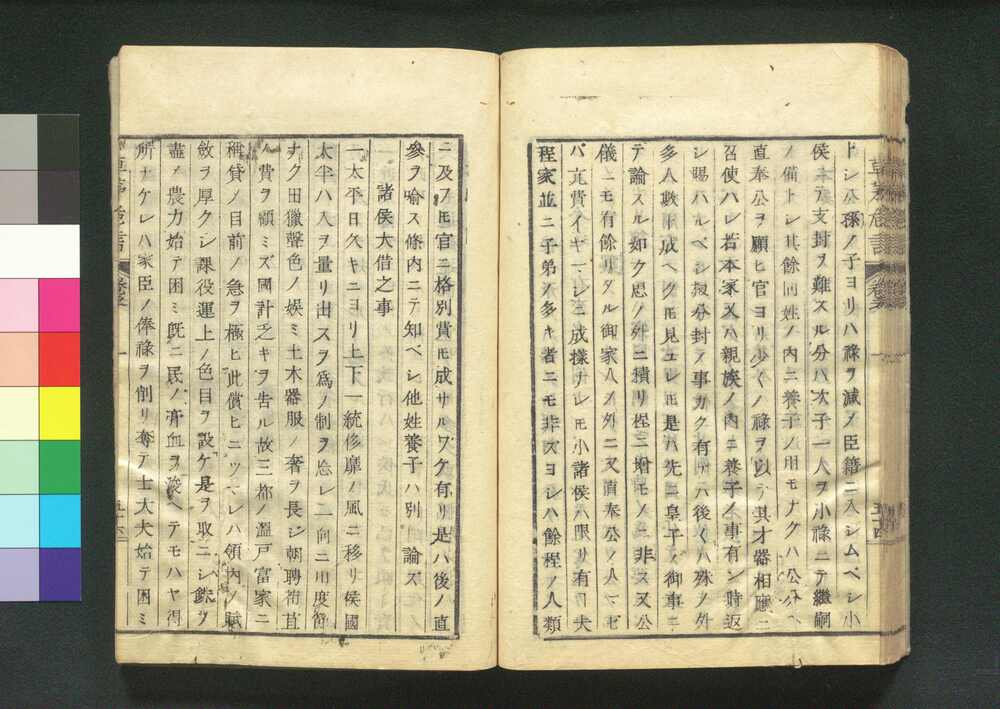 トシ公孫ノ子ヨリハ祿ヲ減メ臣籍ニ入シムベシ小
侯本テ支封ヲ難スル分ハ次子一人ヲ小祿ニテ繼嗣
ノ備トシ其餘同姓ノ内ニ養子ノ用モナクハ公
直奉公ヲ願ヒ官ヨリ少くノ祿ヲ以テ其才器相應ニ
召使ハレ若本家又ハ親族ノ内ニ養子ノ事有ン時返
シ賜ハルベシ扨分封ノ事カク有テハ後くハ殊ノ外
多人數ニ成ヘクモ見ユレモ是ハ先ニ皇子ノ御事ニ
テ論スル如ク思ノ外ニ積リ程ニ增モノニ非ス又公
儀ニモ有餘リタル御家人ノ外ニ又直奉公ノ人マセ
バ冗費イヤマシニ成樣ナレモ小諸侯ハ限リ有テ大
程家並ニ子弟ノ多キ者ニモ非ズヨシハ餘程ノ人類
ニ及フモ官ニ格別費モ成サルワケ有リ是ハ後ノ直
參ヲ喩ス條内ニテ知ベシ他姓養子ハ別ニ論ズ
諸侯大借之事
一太平日久キニヨリ上下一統侈靡ノ風ニ移リ侯國
太半ハ入ヲ量リ出スヲ爲ノ制ヲ忘レ一向ニ用度節
ナク田獵聲色ノ娯ミ土木器服ノ奢ヲ長ジ朝聘苞苴
ノ費ヲ顧ミズ國計乏キヲ告ル故三都ノ溫戸富家ニ
稱貸ノ目前ノ急ヲ極ヒ此償ヒニツマレハ領内ノ賦
斂ヲ厚クシ課役運上ノ色目ヲ設ケ是ヲ取ニシ餘ヲ
盡メ農力始テ困ミ既ニ民ノ膏血ヲ浚ヘテモハヤ得
所ナケレハ家臣ノ俸祿ヲ削リ奪テ士大夫始テ困ミ